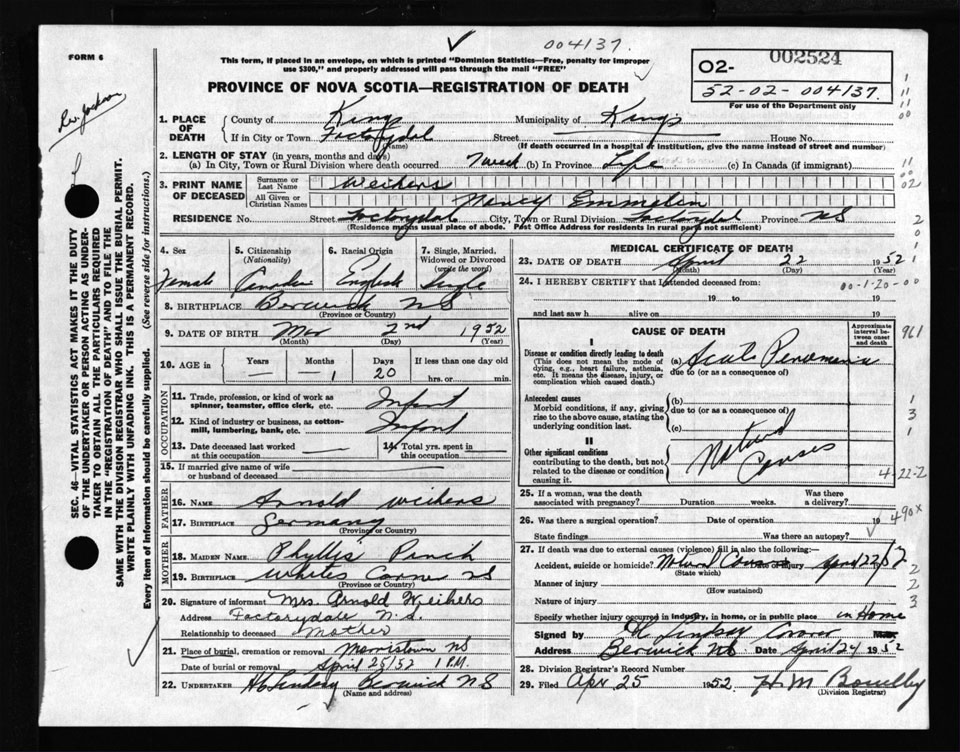 004137.
FORM 6
This form, if placed in an envelope, on which is printed "Dominion Statistics—Free, penalty for improper
use $300," and properly addressed will pass through the mail "FREE"
PROVINCE OF NOVA SCOTIA—REGISTRATION OF DEATH
002524
02-
52-02-004137.
For use of the Department only
1. PLACE OF DEATH
County of Kings Municipality of Kings
If in City or Town Factorydal Street House No.
(Name) (If death occurred in a hospital or institution, give the name instead of street and number)
2. LENGTH OF STAY (in years, months and days)
(a) In City, Town or Rural Division where death occurred 1 week (b) In Province Life (c) In Canada (if immigrant)
3. PRINT NAME OF DECEASED
Surname or Last Name Weihers
All Given or Christian Names Nancy Emmalin
RESIDENCE No. Street Factorydal City, Town or Rural Division Factorydal Province NS
(Residence means usual place of abode. Post Office Address for residents in rural parts not sufficient)
4. Sex
Female
5. Citizenship
(Nationality)
Canadian
6. Racial Origin
English
7. Single, Married,
Widowed or Divorced
(write the word)
Single
8. BIRTHPLACE Berwick NS
(Province or Country)
9. DATE OF BIRTH Mar 2nd 1952
(Month) (Day) (Year)
10. AGE in Years — Months 1 Days 20 If less than one day old
hrs. or min.
OCCUPATION
11. Trade, profession, or kind of work as
spinner, teamster, office clerk, etc. Infant
12. Kind of industry or business, as cotton-
mill, lumbering, bank, etc. Infant
13. Date deceased last worked
at this occupation
14. Total yrs. spent in
this occupation
15. If married give name of wife
or husband of deceased
FATHER
16. NAME Arnold Weihers
17. BIRTHPLACE Germany
(Province or Country)
MOTHER
18. MAIDEN NAME Phyllis Pinch
19. BIRTHPLACE Whites Corner NS
(Province or Country)
20. Signature of informant Mrs. Arnold Weihers
Address Factorydale N.S.
Relationship to deceased Mother
21. Place of burial, cremation or removal Morristown NS
Date of burial or removal April 25/52 1 P.M.
22. UNDERTAKER Berwick NS
(Name and address)
MEDICAL CERTIFICATE OF DEATH
23. DATE OF DEATH April 22 1952
(Month) (Day) (Year)
24. I HEREBY CERTIFY that I attended deceased from:
00-1-20-00
19 to 19
and last saw h alive on 19
CAUSE OF DEATH
Approximate
interval be-
tween onset
and death
961
I
Disease or condition directly leading to death
(This does not mean the mode of
dying, e.g., heart failure, asthenia,
etc. It means the disease, injury, or
complication which caused death.)
(a) Acute Pneumonia
due to (or as a consequence of)
Antecedent causes
Morbid conditions, if any, giving
rise to the above cause, stating the
underlying condition last.
(b)
due to (or as a consequence of)
(c)
II
Other significant conditions
contributing to the death, but not
related to the disease or condition
causing it.
Natural
Causes
4-22-2
25. If a woman, was the death
associated with pregnancy? Duration weeks. Was there
a delivery?
26. Was there a surgical operation? Date of operation 19
490x
State findings Was there an autopsy?
27. If death was due to external causes (violence) fill in also the following:
Accident, suicide or homicide? Natural Causes Date of injury April 22/52
(State which)
Manner of injury
(How sustained)
Nature of injury
Specify whether injury occurred in industry, in home, or in public place in Home
Signed by Lindsay Coroner
Address Berwick NS Date April 24 1952
28. Division Registrar's Record Number
29. Filed Apr 25 1952 H M
(Division Registrar)
SEC. 46—VITAL STATISTICS ACT MAKES IT THE DUTY
OF THE UNDERTAKER OR PERSON ACTING AS UNDER-
TAKER TO OBTAIN ALL THE PARTICULARS REQUIRED
IN THE "REGISTRATION OF DEATH" AND TO FILE THE
SAME WITH THE DIVISION REGISTRAR WHO SHALL ISSUE THE BURIAL PERMIT.
WRITE PLAINLY WITH UNFADING INK. THIS IS A PERMANENT RECORD.
Every item of information should be carefully supplied. (See reverse side for instructions.)